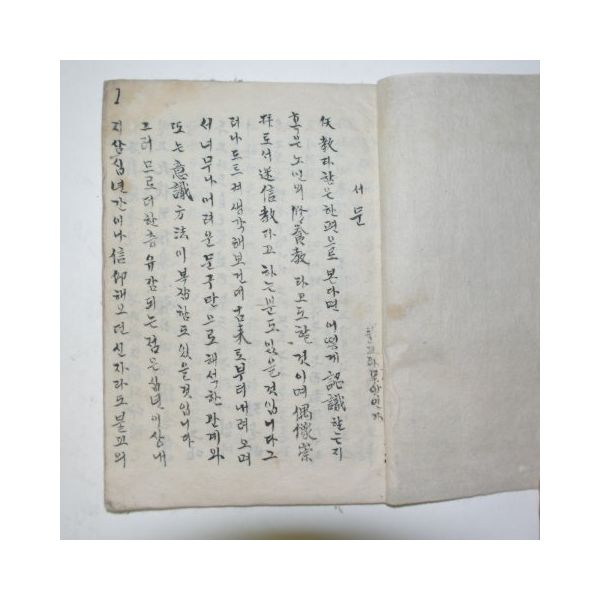 서문
불교란 무엇인가
佛教라 함은 한편으로 본다면 어떻게 認識할는지
혹은 노인의 修養教라고도 할 것이며 偶像崇
拜로서 迷信教라고 하는 분도 있을 것입니다 그
러나 도리켜 생각해 보건대 古来로부터 내려오며
서 너무나 어려운 문구만으로 해석한 관계와
또는 意識方法이 복잡함도 있을 것입니다
그러므로 더 한층 유감되는 점은 십년 이상 내
지 삼십년간이나 信仰해 오던 신자라도 불교의
1